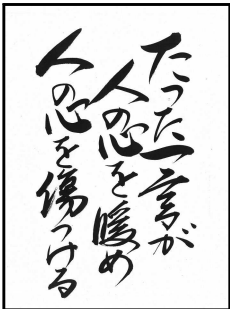 たった一言が
人の心を暖め
人の心を傷つける